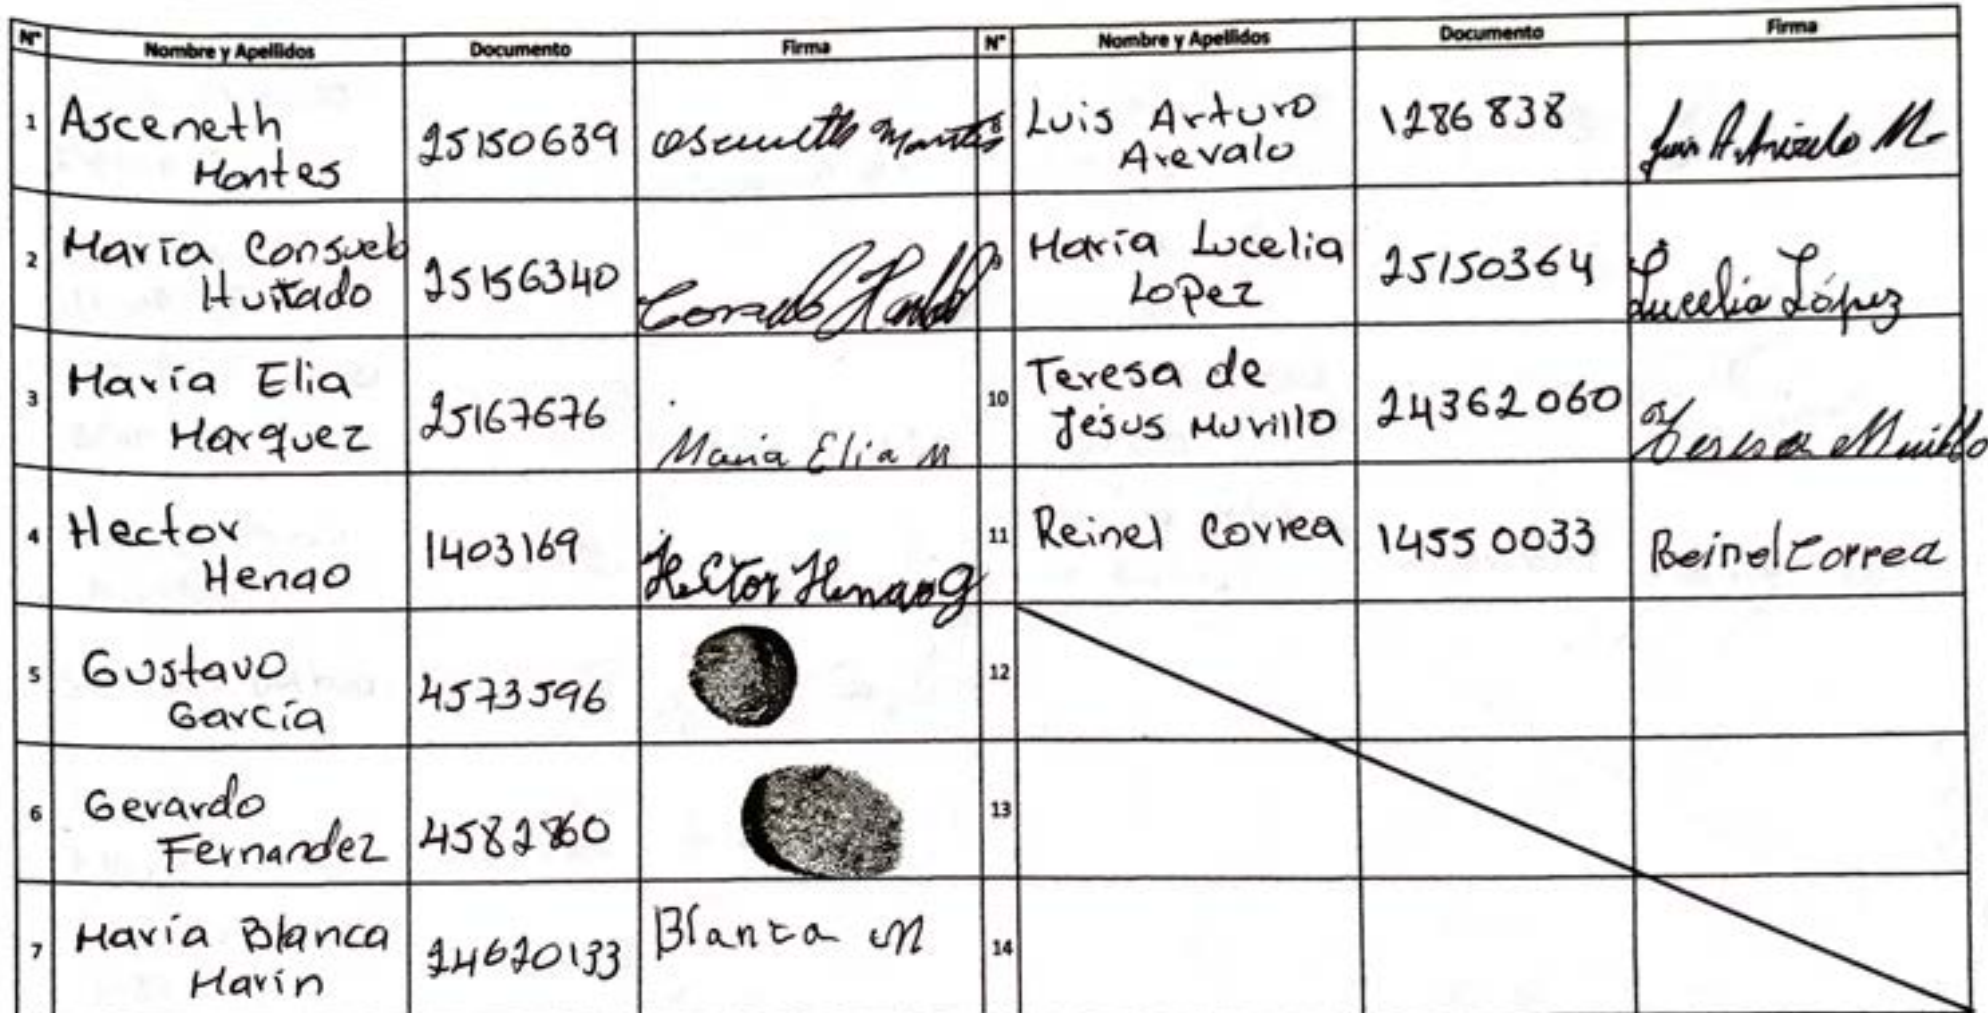 N° Nombre y Apellidos Documento Firma N° Nombre y Apellidos Documento Firma
1 Asceneth Montes 25150639 Asceneth Montes 8 Luis Arturo Arevalo 1286838 Luis A. Arévalo M.
2 María Consuelo Hurtado 25156340 Consuelo Hurtado 9 María Lucelia Lopez 25150364 Lucelia López
3 María Elia Marquez 25167676 Maria Elia M 10 Teresa de Jesus Murillo 24362060 Teresa Murillo
4 Hector Henao 1403169 Hector Henao G 11 Reinel Correa 14550033 Reinel Correa
5 Gustavo García 4573596 12
6 Gerardo Fernandez 13
7 María Blanca Marín 24620133 Blanca M 14